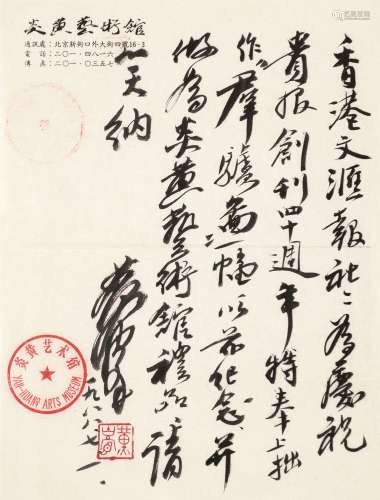 炎黄藝術館
通訊處:北京新街口外大街四號16-3
電話:二〇一·四八一六
傳真:二〇一·〇三五七
香港文滙報社:為慶祝
貴报創刊四十週年特奉上拙
作群驢畵一幅以示纪念并
做為炎黄藝術館禮品:請
笑纳
黄胄
一九八八七、一
炎黄艺术馆
YAN-HUANG ARTS MUSEUM
黄胄